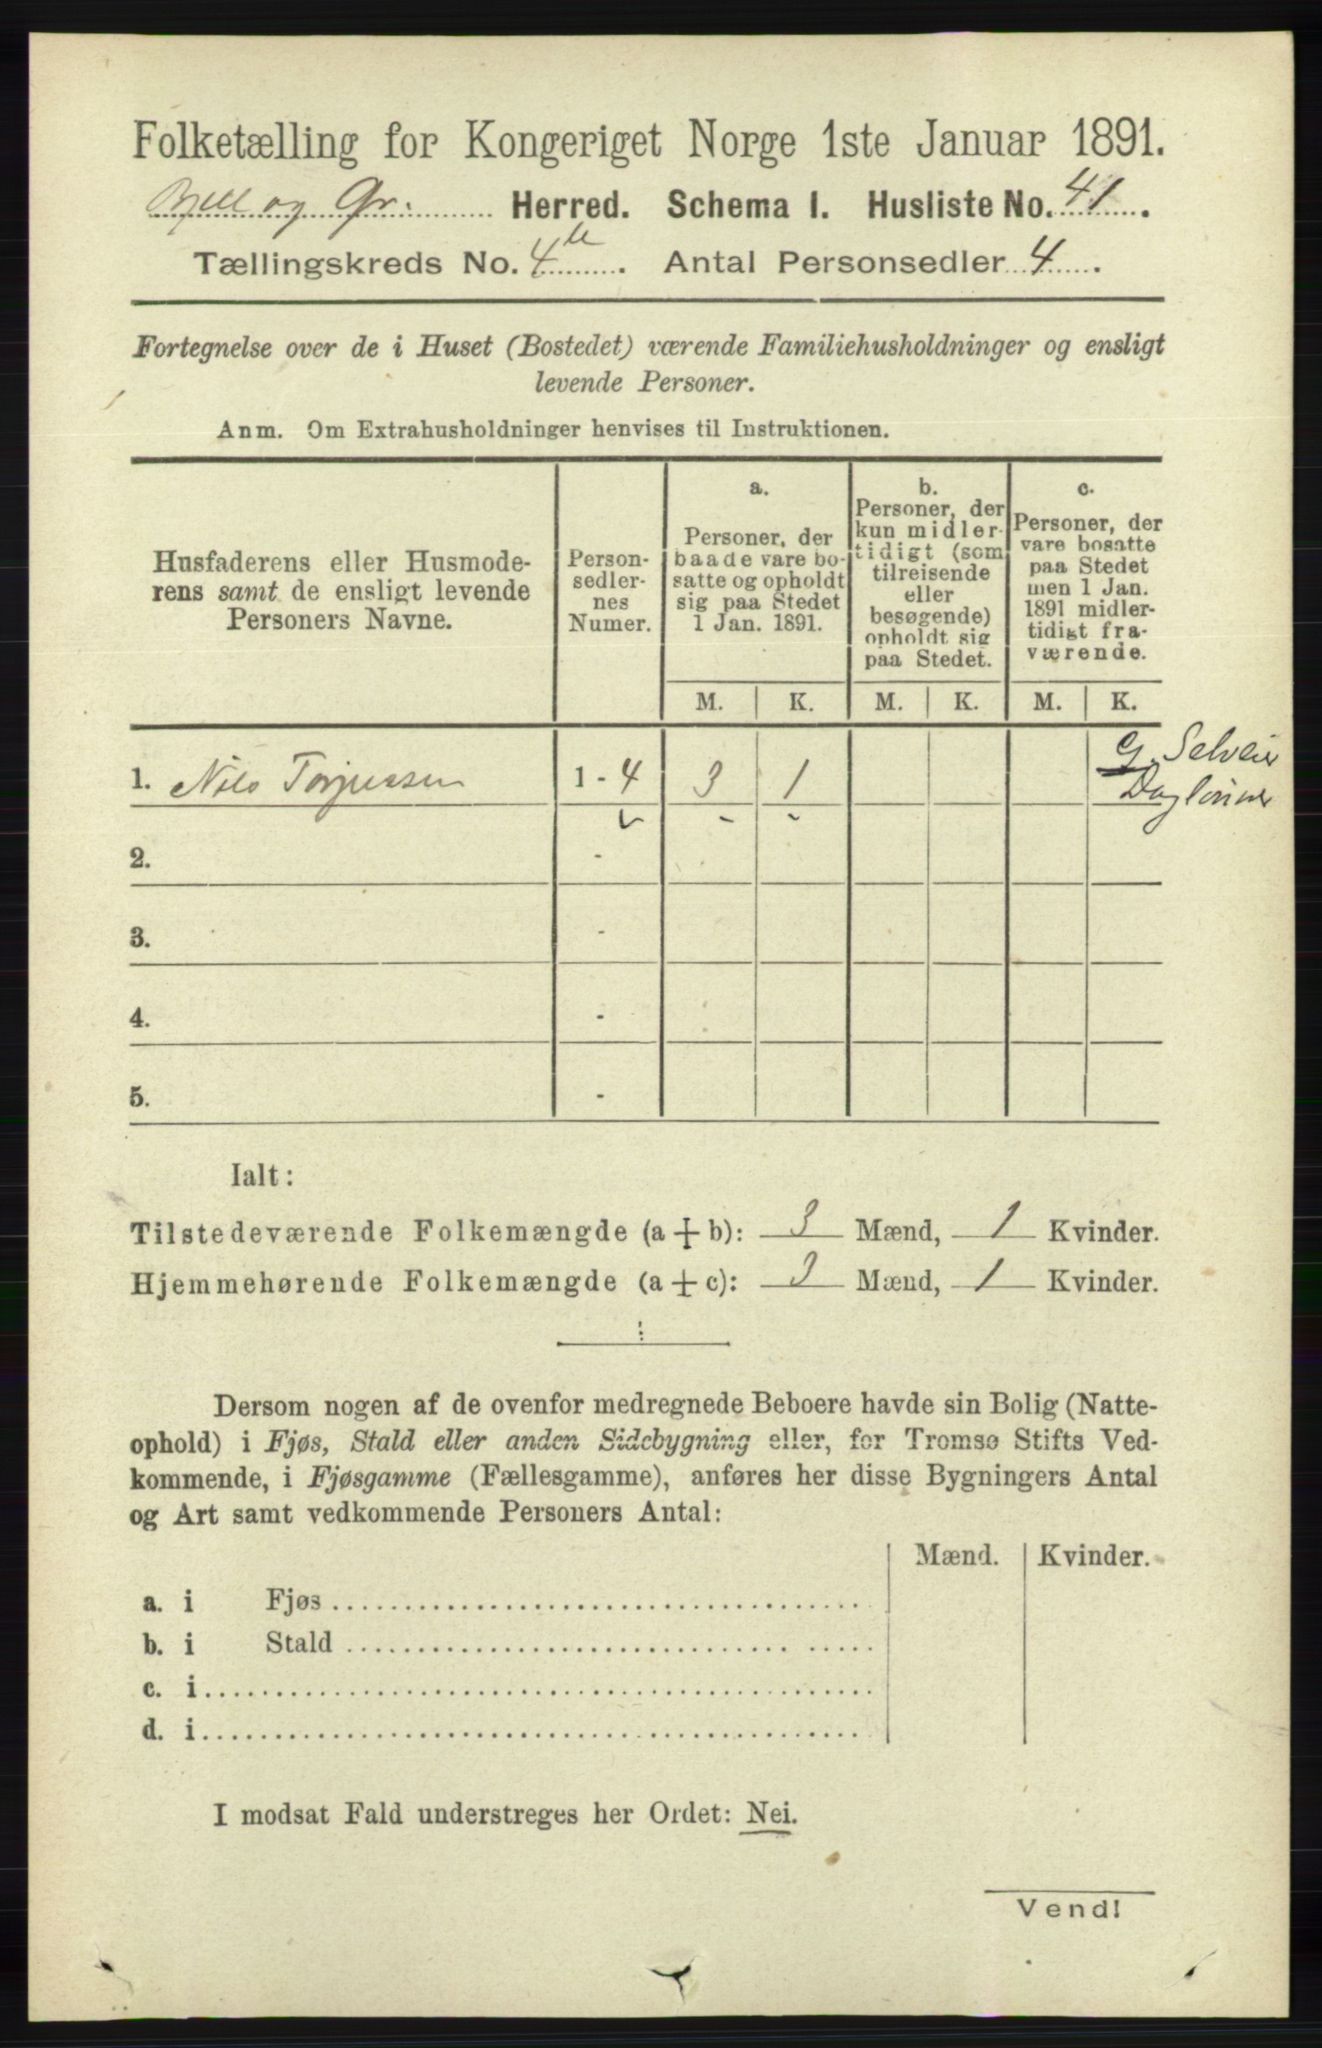 Folketælling for Kongeriget Norge 1ste Januar 1891.
Bjell og Gr. Herred. Schema I. Husliste No. 41.
Tællingskreds No. 4. Antal Personsedler 4.
Fortegnelse over de i Huset (Bostedet) værende Familiehusholdninger og ensligt
levende Personer.
Anm. Om Extrahusholdninger henvises til Instruktionen.
Husfaderens eller Husmode-
rens samt de ensligt levende
Personers Navne.
Person-
sedler-
nes
Numer.
a.
Personer, der
baade vare bo-
satte og opholdt
sig paa Stedet
1 Jan. 1891.
b.
Personer, der
kun midler-
tidigt (som
tilreisende
eller
besøgende)
opholdt sig
paa Stedet.
c.
Personer, der
vare bosatte
paa Stedet
men 1 Jan.
1891 midler-
tidigt fra-
værende.
M. K. M. K. M. K.
1. Nils Torjussen 1 - 4 3 1
G. Selveier
Daglønner
2. -
3. -
4. -
5. -
Ialt:
Tilstedeværende Folkemængde (a + b): 3 Mænd, 1 Kvinder.
Hjemmehørende Folkemængde (a + c): 3 Mænd, 1 Kvinder.
Dersom nogen af de ovenfor medregnede Beboere havde sin Bolig (Natte-
ophold) i Fjøs, Stald eller anden Sidebygning eller, for Tromsø Stifts Ved-
kommende, i Fjøsgamme (Fællesgamme), anføres her disse Bygningers Antal
og Art samt vedkommende Personers Antal:
Mænd. Kvinder.
a. i Fjøs
b. i Stald
c. i
d. i
I modsat Fald understreges her Ordet: Nei.
Vend!